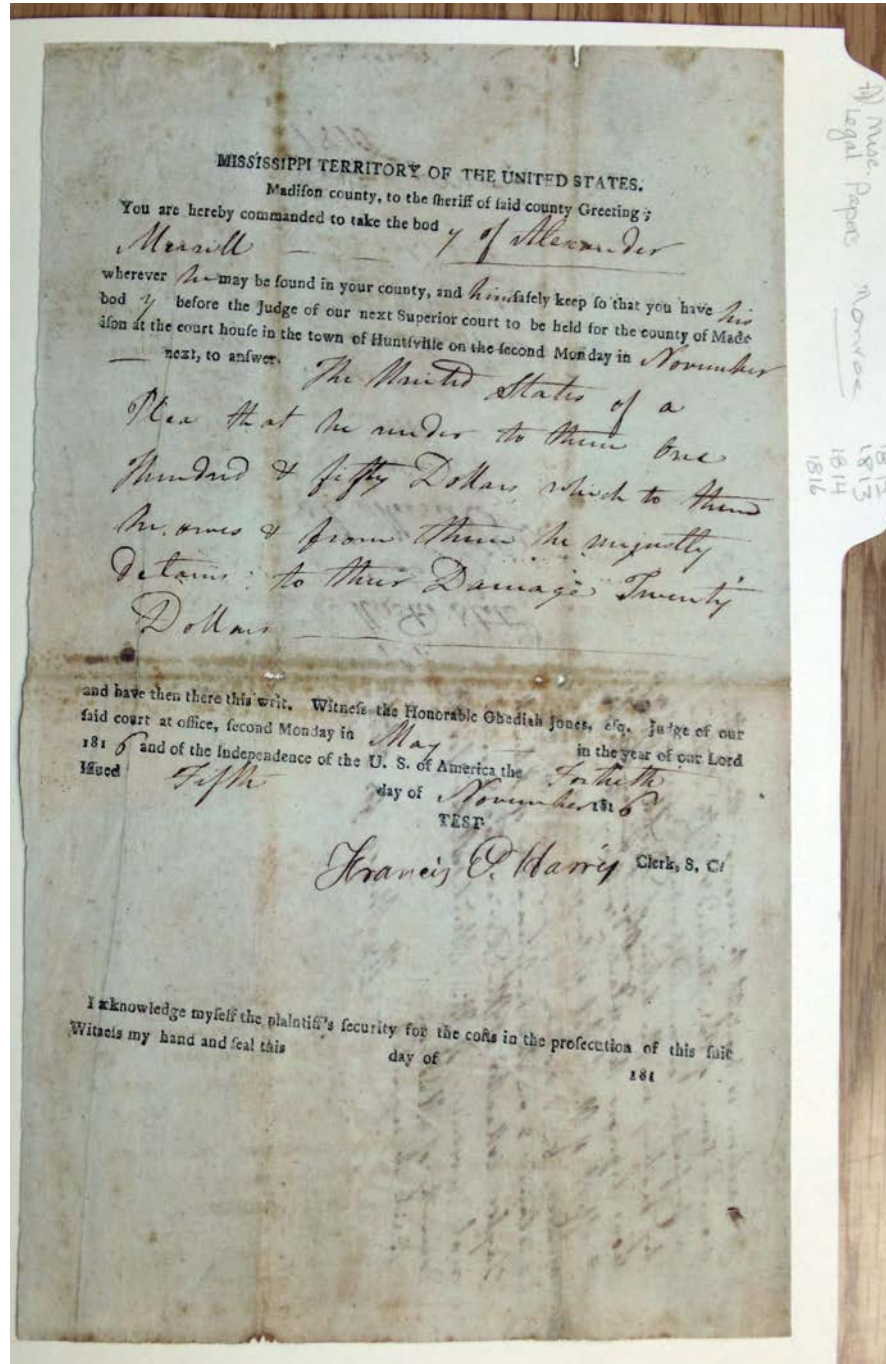 MISSISSIPPI TERRITORY OF THE UNITED STATES.
Madiſon county, to the ſheriff of ſaid county Greeting;
You are hereby commanded to take the bod y of Alexander
Merrill
wherever he may be found in your county, and him ſafely keep ſo that you have his
bod y before the Judge of our next Superior court to be held for the county of Madi
iſon at the court houſe in the town of Huntſville on the ſecond Monday in November
— next, to anſwer. The United States of a
Plea that he render to them One
Hundred & fifty Dollars which to them
he owes & from them he unjustly
detains : to their Damage Twenty
Dollars
and have then there this writ. Witneſs the Honorable Obediah Jones, eſq. Judge of our
ſaid court at office, ſecond Monday in May in the year of our Lord
181 6 and of the Independence of the U. S. of America the Fortieth
Iſſued Fifth day of November 181 6
TEST
Francis E. Harris Clerk, S. C.
I acknowledge myſelf the plaintiff's ſecurity for the coſts in the proſecution of this ſuit
Witneſs my hand and ſeal this day of 181
Misc. Papers
Legal Monroe
1813
1814
1816